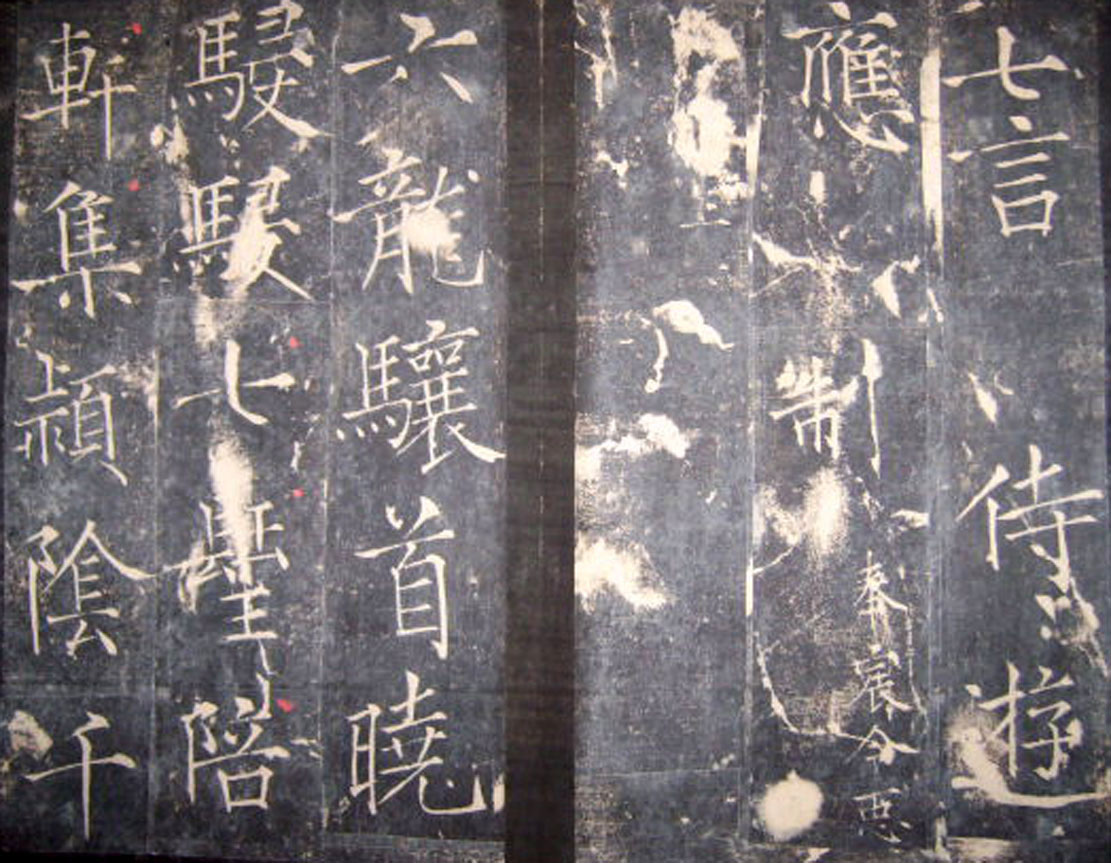 七言侍遊
應制奉宸令𢘑
上
六龍驤首曉
駸駸七聖陪
軒集潁陰千